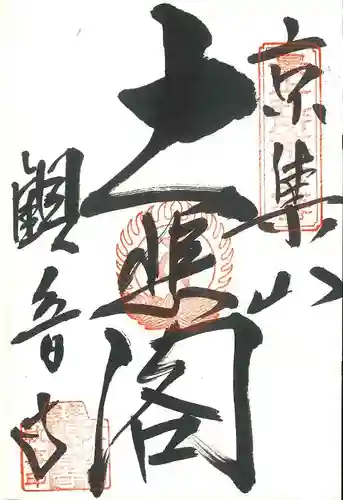 京集山
大悲閣
觀音寺